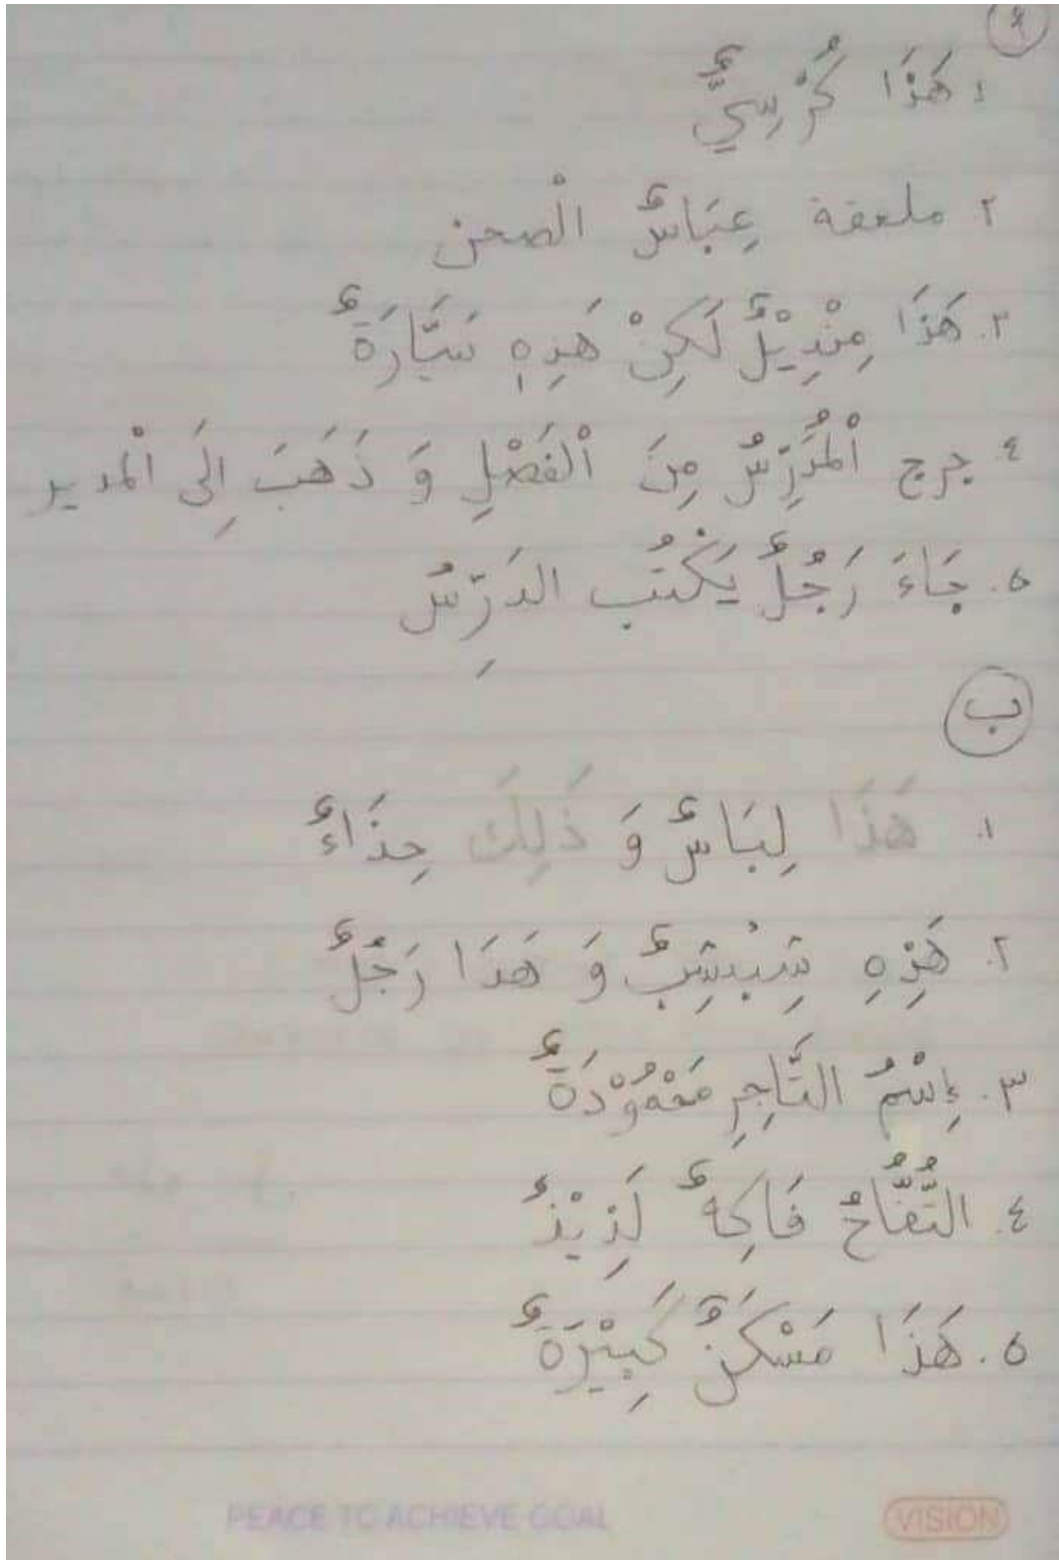 ١ هَذَا كُرْسِيٌّ
٢ ملعقة عِبَاسٌ الْصحن
٣. هَذَا مِنْدِيْلٌ لَكِنْ هَذِهِ سَيَّارَةٌ
٤. جرج الْمُدَرِّسُ مِنَ الْفَصْلِ وَ ذَهَبَ اِلَى الْمدير
٥. جَاءَ رَجُلٌ يَكْتُب الدَرِّسُ
ب
١. هَذَا لِبَاسٌ وَ ذَلِكَ حِذَاءٌ
٢. هَذِهِ شِبْشِبٌ وَ هَذَا رَجُلٌ
٣. إِسْمُ التَّاجِرِ مَحْمُوْدَةٌ
٤. التُّفَّاحُ فَاكِهٌ لَذِيْذٌ
٥. هَذَا مَسْكَنٌ كَبِيْرَةٌ
PEACE TO ACHIEVE GOAL
VISION